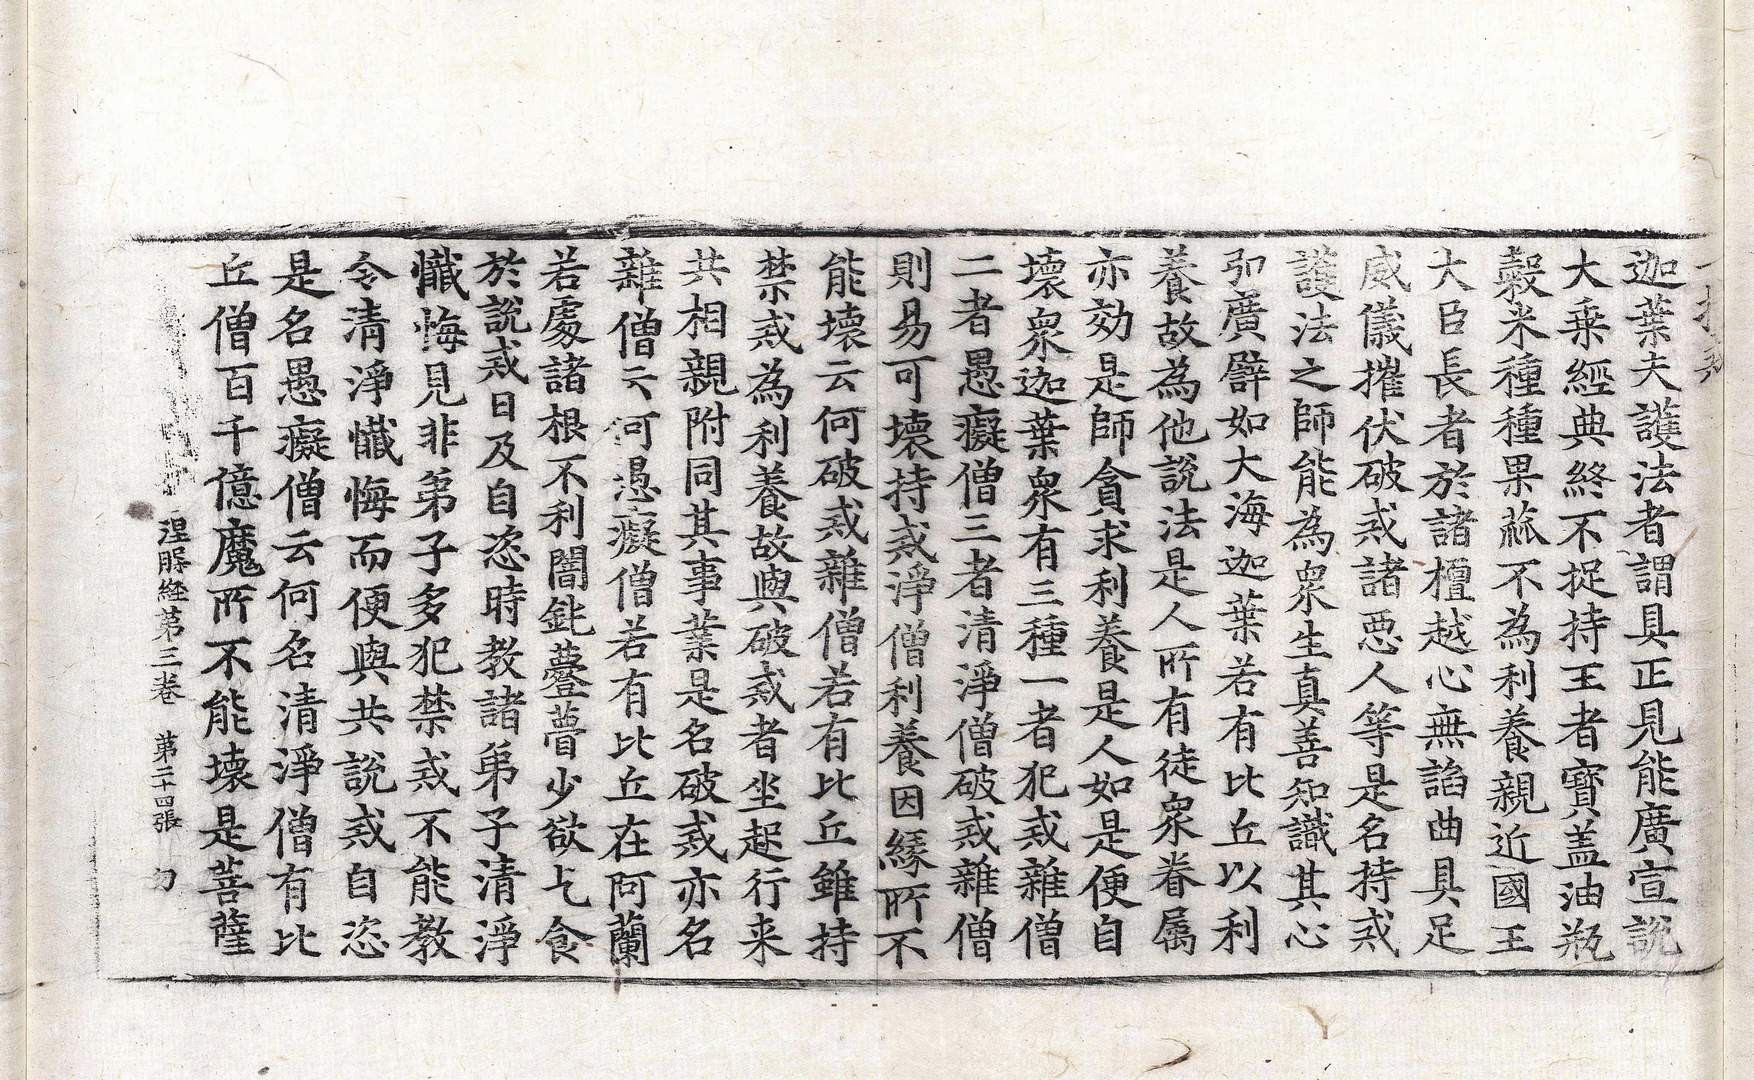 迦葉夫護法者謂具正見能廣宣說
大乗經典終不捉持王者寶盖油瓶
糓米種種果蓏不為利養親近國王
大臣長者於諸檀越心無諂曲具足
威儀摧伏破戒諸惡人等是名持戒
護法之師能為衆生真善知識其心
卯廣譬如大海迦葉若有比丘以利
養故為他說法是人所有徒衆眷屬
亦効是師貪求利養是人如是便自
壞衆迦葉衆有三種一者犯戒雜僧
二者愚癡僧三者清淨僧破戒雜僧
則易可壞持戒淨僧利養因緣所不
能壞云何破戒雜僧若有比丘雖持
禁戒為利養故與破戒者坐起行来
共相親附同其事業是名破戒亦名
雜僧云何愚癡僧若有比丘在阿蘭
若處諸根不利闇鈍𧄼瞢少欲乞食
於說戒日及自恣時教諸弟子清淨
懺悔見非弟子多犯禁戒不能教
令清淨懺悔而便與共說戒自恣
是名愚癡僧云何名清淨僧有比
丘僧百千億魔所不能壞是菩薩
涅槃経第三卷 第二十四張